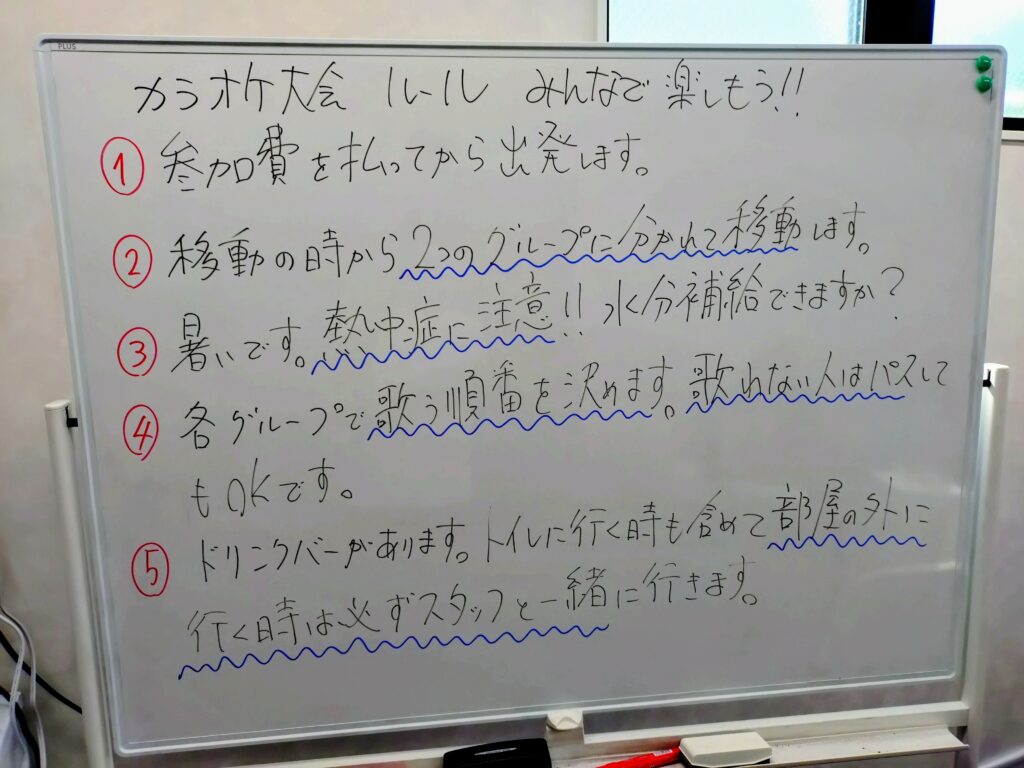 PLUS
カラオケ大会 ルール みんなで楽しもう!!
① 参加費を払ってから出発します。
② 移動の時から2つのグループに分かれて移動します。
③ 暑いです。熱中症に注意!! 水分補給できますか?
④ 各グループで歌う順番を決めます。歌れない人はパスして
もOKです。
⑤ ドリンクバーがあります。トイレに行く時も含めて部屋の外に
行く時は必ずスタッフと一緒に行きます。